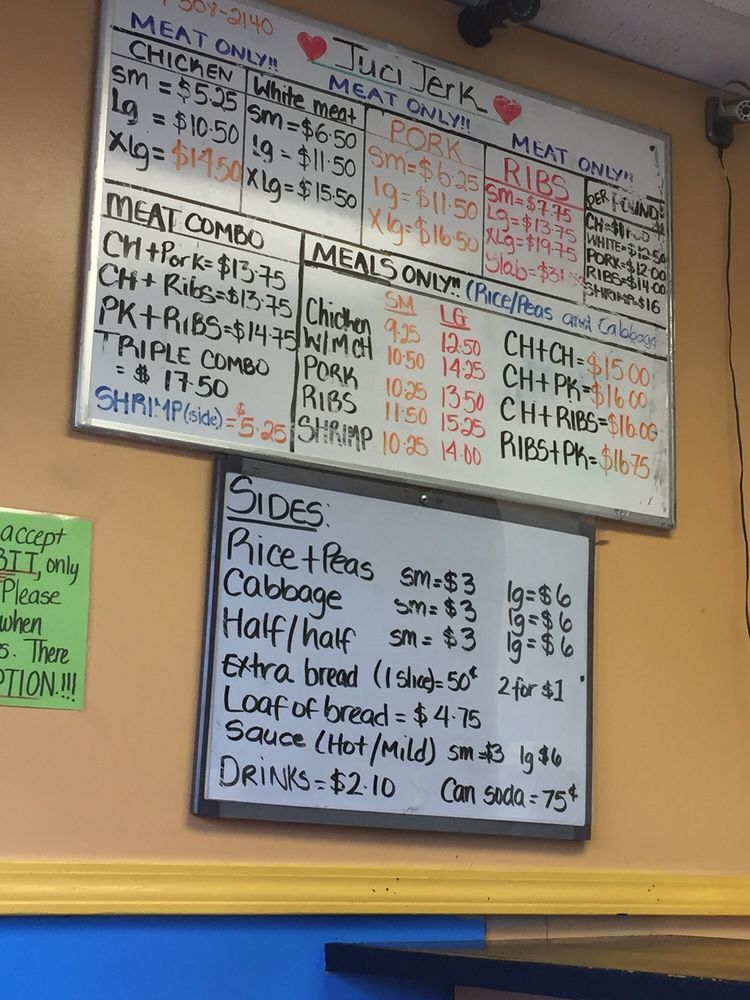 308-2140
Juci Jerk
MEAT ONLY!!
MEAT ONLY!!
MEAT ONLY!!
CHICKEN
sm = $5.25
Lg = $10.50
Xlg = $14.50
White meat
Sm = $6.50
lg = $11.50
Xlg = $15.50
PORK
Sm = $6.25
lg = $11.50
Xlg = $16.50
RIBS
Sm = $7.75
Lg = $13.75
XLg = $19.75
Slab = $31
PER POUND
CH =
WHITE = $12.50
PORK = $12.00
RIBS = $14.00
SHRIMP = $16
MEAT COMBO
CH + Pork = $13.75
CH + Ribs = $13.75
PK + RIBS = $14.75
TRIPLE COMBO
= $ 17.50
SHRIMP (side) = $5.25
MEALS ONLY!! (Rice/Peas and Cabbage
SM LG
Chicken 9.25 12.50
W/M CH 10.50 14.25
PORK 10.25 13.50
RIBS 11.50 15.25
SHRIMP 10.25 14.00
CH + CH = $15.00
CH + PK = $16.00
CH + RIBS = $16.00
RIBS + PK = $16.75
SIDES:
Rice + Peas sm = $3 lg = $6
Cabbage sm = $3 lg = $6
Half/half sm = $3 lg = $6
Extra bread (1 slice) = 50¢ 2 for $1
Loaf of bread = $4.75
Sauce (Hot/Mild) sm $3 lg $6
DRINKS = $2.10 Can soda = 75¢
accept
, only
Please
when
s. There
PTION.!!!